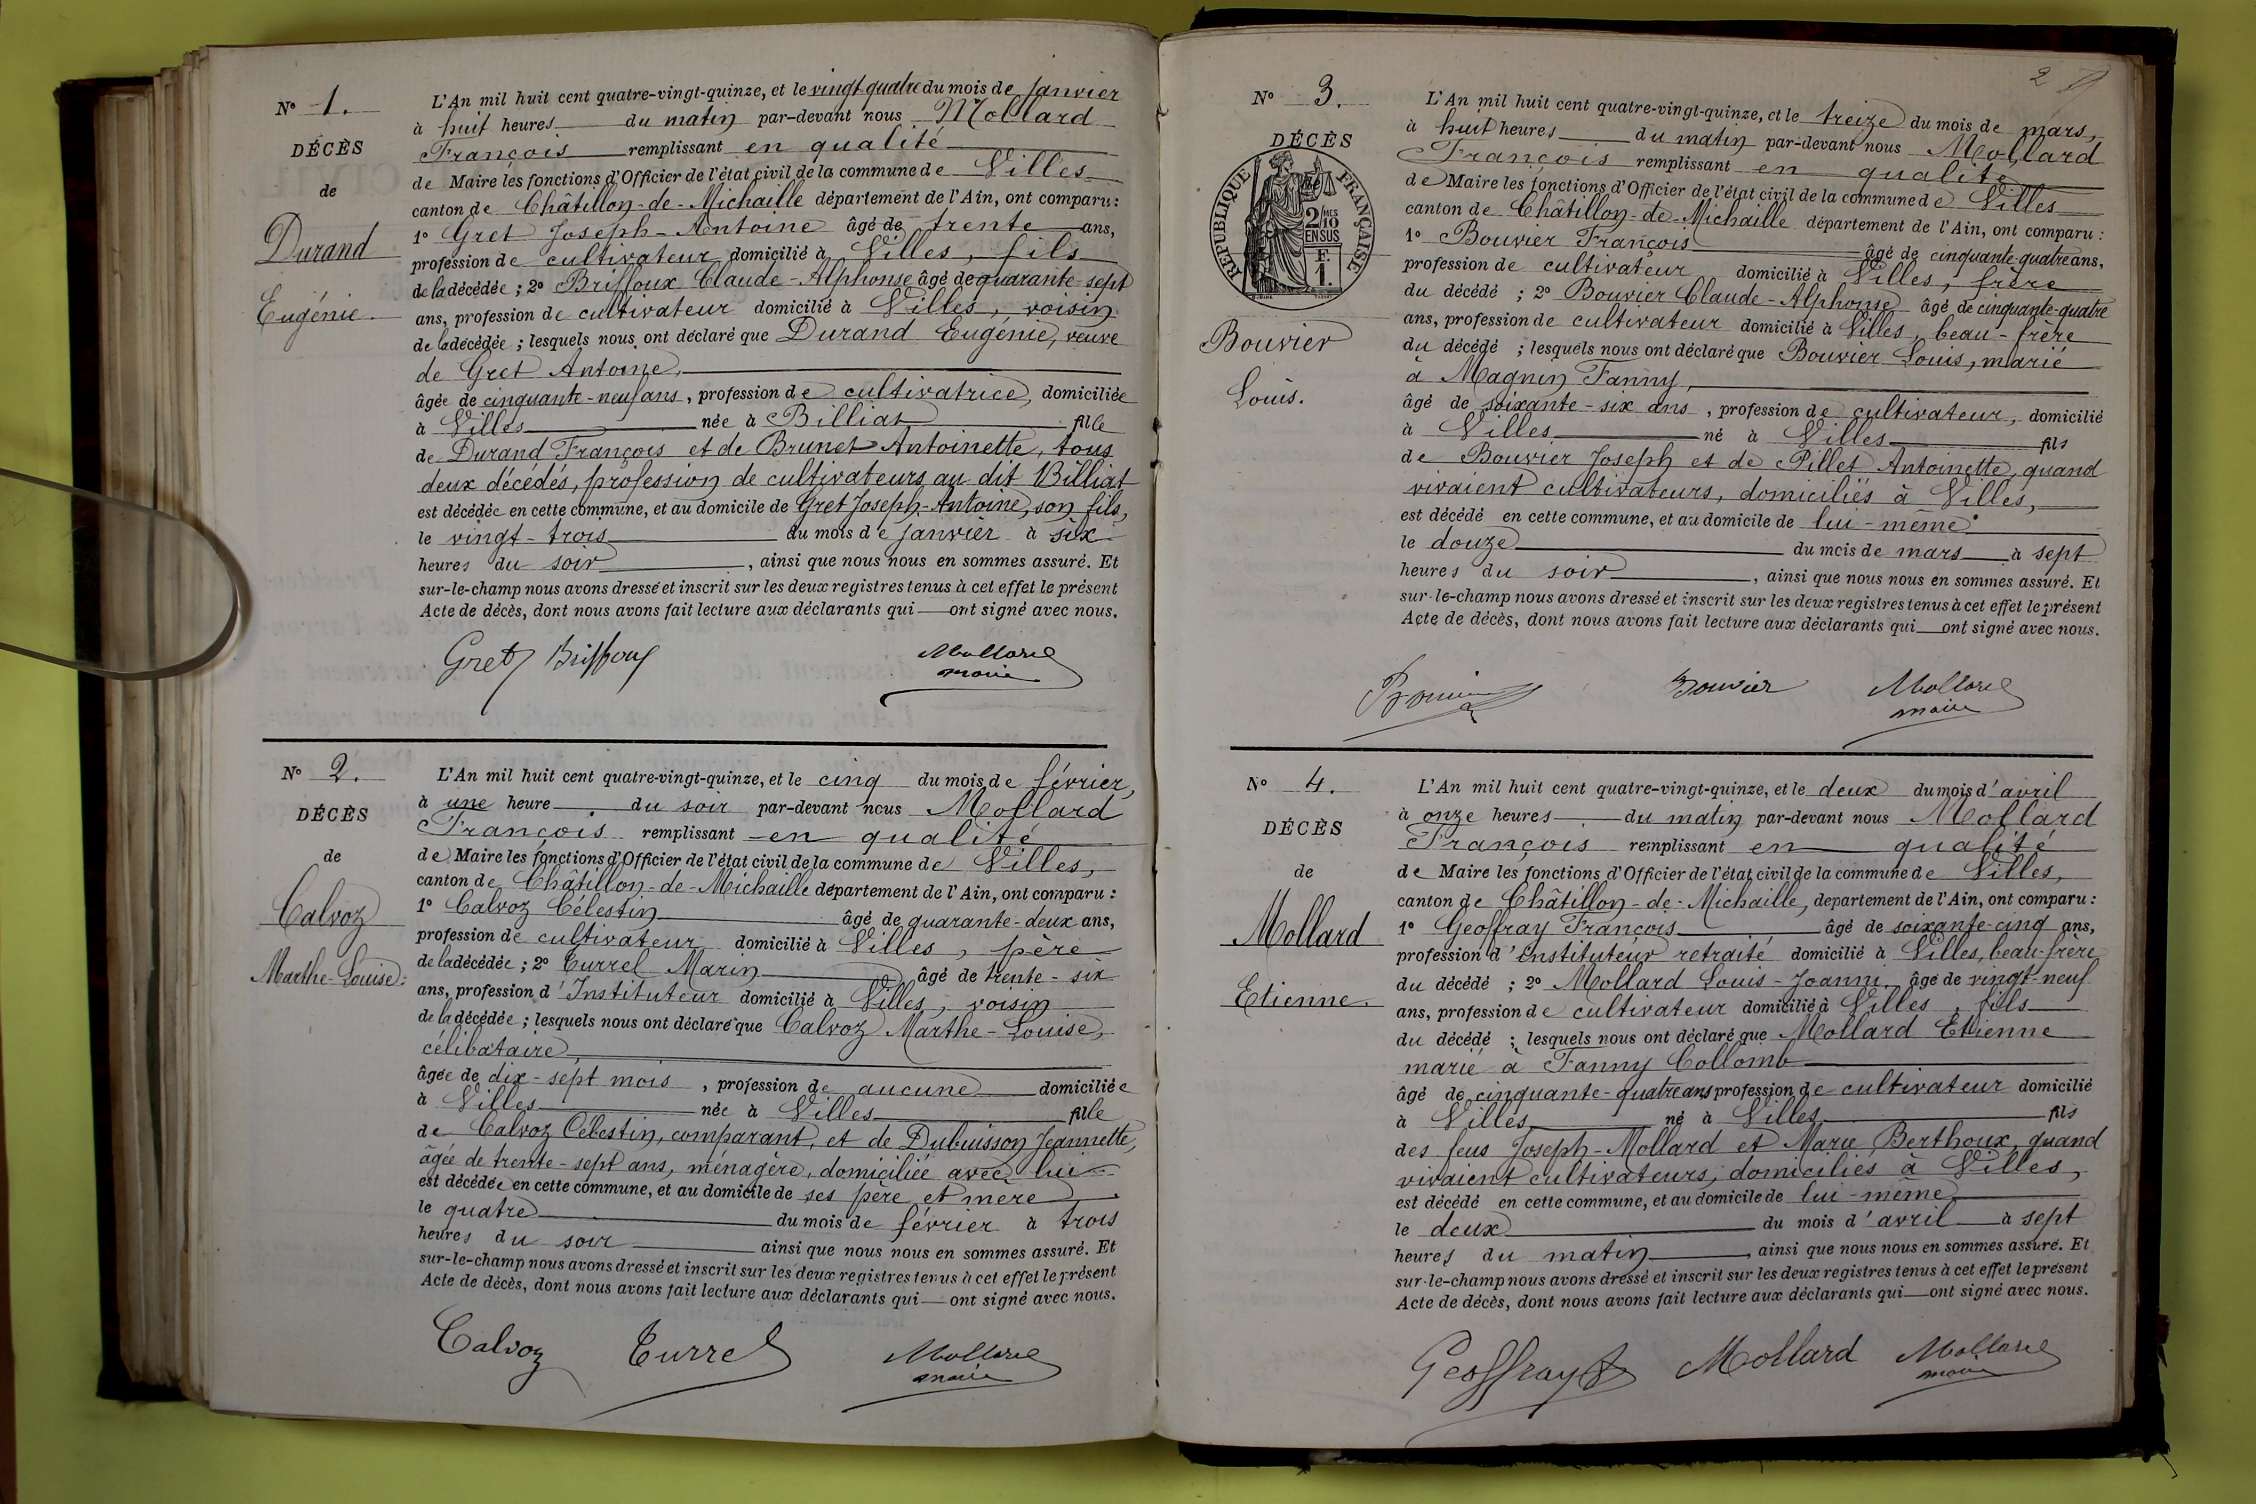 N° 1.
DÉCÈS
de
Durand
Eugénie.
L'An mil huit cent quatre-vingt-quinze, et le vingt-quatre du mois de Janvier
à huit heures du matin par-devant nous Mollard
François remplissant en qualité
de Maire les fonctions d'Officier de l'état civil de la commune de Villes
canton de Châtillon-de-Michaille département de l'Ain, ont comparu :
1° Gret Joseph-Antoine âgé de trente ans,
profession de cultivateur domicilié à Villes, fils
de la décédée ; 2° Briffoux Claude-Alphonse âgé de quarante-sept
ans, profession de cultivateur domicilié à Villes, voisin
de la décédée ; lesquels nous ont déclaré que Durand Eugénie, veuve
de Gret Antoine,
âgée de cinquante-neuf ans, profession de cultivatrice, domiciliée
à Villes née à Billiat fille
de Durand François et de Brunet Antoinette, tous
deux décédés, profession de cultivateurs au dit Billiat
est décédée en cette commune, et au domicile de Gret Joseph-Antoine, son fils,
le vingt-trois du mois de Janvier à six
heures du soir, ainsi que nous nous en sommes assuré. Et
sur-le-champ nous avons dressé et inscrit sur les deux registres tenus à cet effet le présent
Acte de décès, dont nous avons fait lecture aux déclarants qui ont signé avec nous.
Gret Briffoux Mollard
maire
N° 2.
DÉCÈS
de
Calvoz
Marthe-Louise.
L'An mil huit cent quatre-vingt-quinze, et le cinq du mois de février,
à une heure du soir par-devant nous Mollard
François remplissant en qualité
de Maire les fonctions d'Officier de l'état civil de la commune de Villes,
canton de Châtillon-de-Michaille département de l'Ain, ont comparu :
1° Calvoz Célestin âgé de quarante-deux ans,
profession de cultivateur domicilié à Villes, père
de la décédée ; 2° Turrel Marin âgé de trente-six
ans, profession d'Instituteur domicilié à Villes, voisin
de la décédée ; lesquels nous ont déclaré que Calvoz Marthe-Louise,
célibataire,
âgée de dix-sept mois, profession de aucune domiciliée
à Villes née à Villes fille
de Calvoz Célestin, comparant, et de Dubuisson Jeannette,
âgée de trente-sept ans, ménagère, domiciliée avec lui
est décédée en cette commune, et au domicile de ses père et mère
le quatre du mois de février à trois
heures du soir ainsi que nous nous en sommes assuré. Et
sur-le-champ nous avons dressé et inscrit sur les deux registres tenus à cet effet le présent
Acte de décès, dont nous avons fait lecture aux déclarants qui ont signé avec nous.
Calvoz Turrel Mollard
maire
2
N° 3.
DÉCÈS
RÉPUBLIQUE FRANÇAISE
2 MES
10
EN SUS
F.
1
Bouvier
Louis.
L'An mil huit cent quatre-vingt-quinze, et le treize du mois de mars,
à huit heures du matin par-devant nous Mollard
François remplissant en qualité
de Maire les fonctions d'Officier de l'état civil de la commune de Villes
canton de Châtillon-de-Michaille département de l'Ain, ont comparu :
1° Bouvier François âgé de cinquante-quatre ans,
profession de cultivateur domicilié à Villes, frère
du décédé ; 2° Bouvier Claude-Alphonse âgé de cinquante-quatre
ans, profession de cultivateur domicilié à Villes, beau-frère
du décédé ; lesquels nous ont déclaré que Bouvier Louis, marié
à Magnin Fanny,
âgé de soixante-six ans, profession de cultivateur, domicilié
à Villes né à Villes fils
de Bouvier Joseph et de Pillet Antoinette, quand
vivaient cultivateurs, domiciliés à Villes,
est décédé en cette commune, et au domicile de lui-même
le douze du mois de mars à sept
heures du soir, ainsi que nous nous en sommes assuré. Et
sur-le-champ nous avons dressé et inscrit sur les deux registres tenus à cet effet le présent
Acte de décès, dont nous avons fait lecture aux déclarants qui ont signé avec nous.
Bouvier Mollard
maire
N° 4.
DÉCÈS
de
Mollard
Etienne.
L'An mil huit cent quatre-vingt-quinze, et le deux du mois d'avril
à onze heures du matin par-devant nous Mollard
François remplissant en qualité
de Maire les fonctions d'Officier de l'état civil de la commune de Villes,
canton de Châtillon-de-Michaille, département de l'Ain, ont comparu :
1° Geoffray François âgé de soixante-cinq ans,
profession d'instituteur retraité domicilié à Villes, beau-frère
du décédé ; 2° Mollard Louis-Joanni âgé de vingt-neuf
ans, profession de cultivateur domicilié à Villes, fils
du décédé ; lesquels nous ont déclaré que Mollard Etienne
marié à Fanny Collomb
âgé de cinquante-quatre ans profession de cultivateur domicilié
à Villes né à Villes fils
des feus Joseph-Mollard et Marie Berthoux, quand
vivaient cultivateurs, domiciliés à Villes,
est décédé en cette commune, et au domicile de lui-même
le deux du mois d'avril à sept
heures du matin, ainsi que nous nous en sommes assuré. Et
sur-le-champ nous avons dressé et inscrit sur les deux registres tenus à cet effet le présent
Acte de décès, dont nous avons fait lecture aux déclarants qui ont signé avec nous.
Geoffray Mollard Mollard
maire